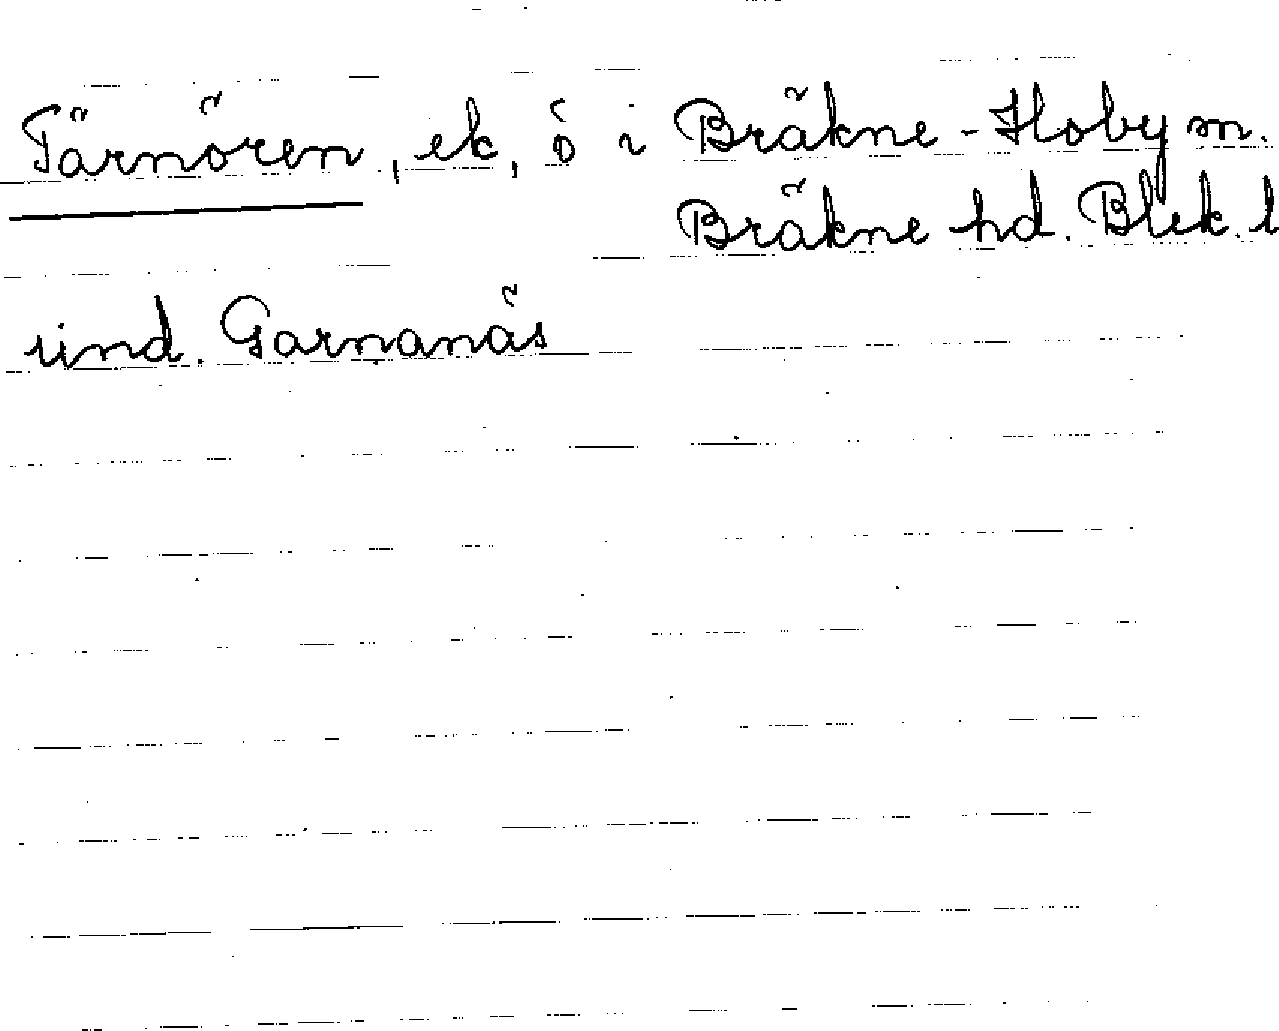 Tärnören, ek, ö i Bräkne-Hoby sn.
Bräkne hd. Blek. l
und. Garnanäs